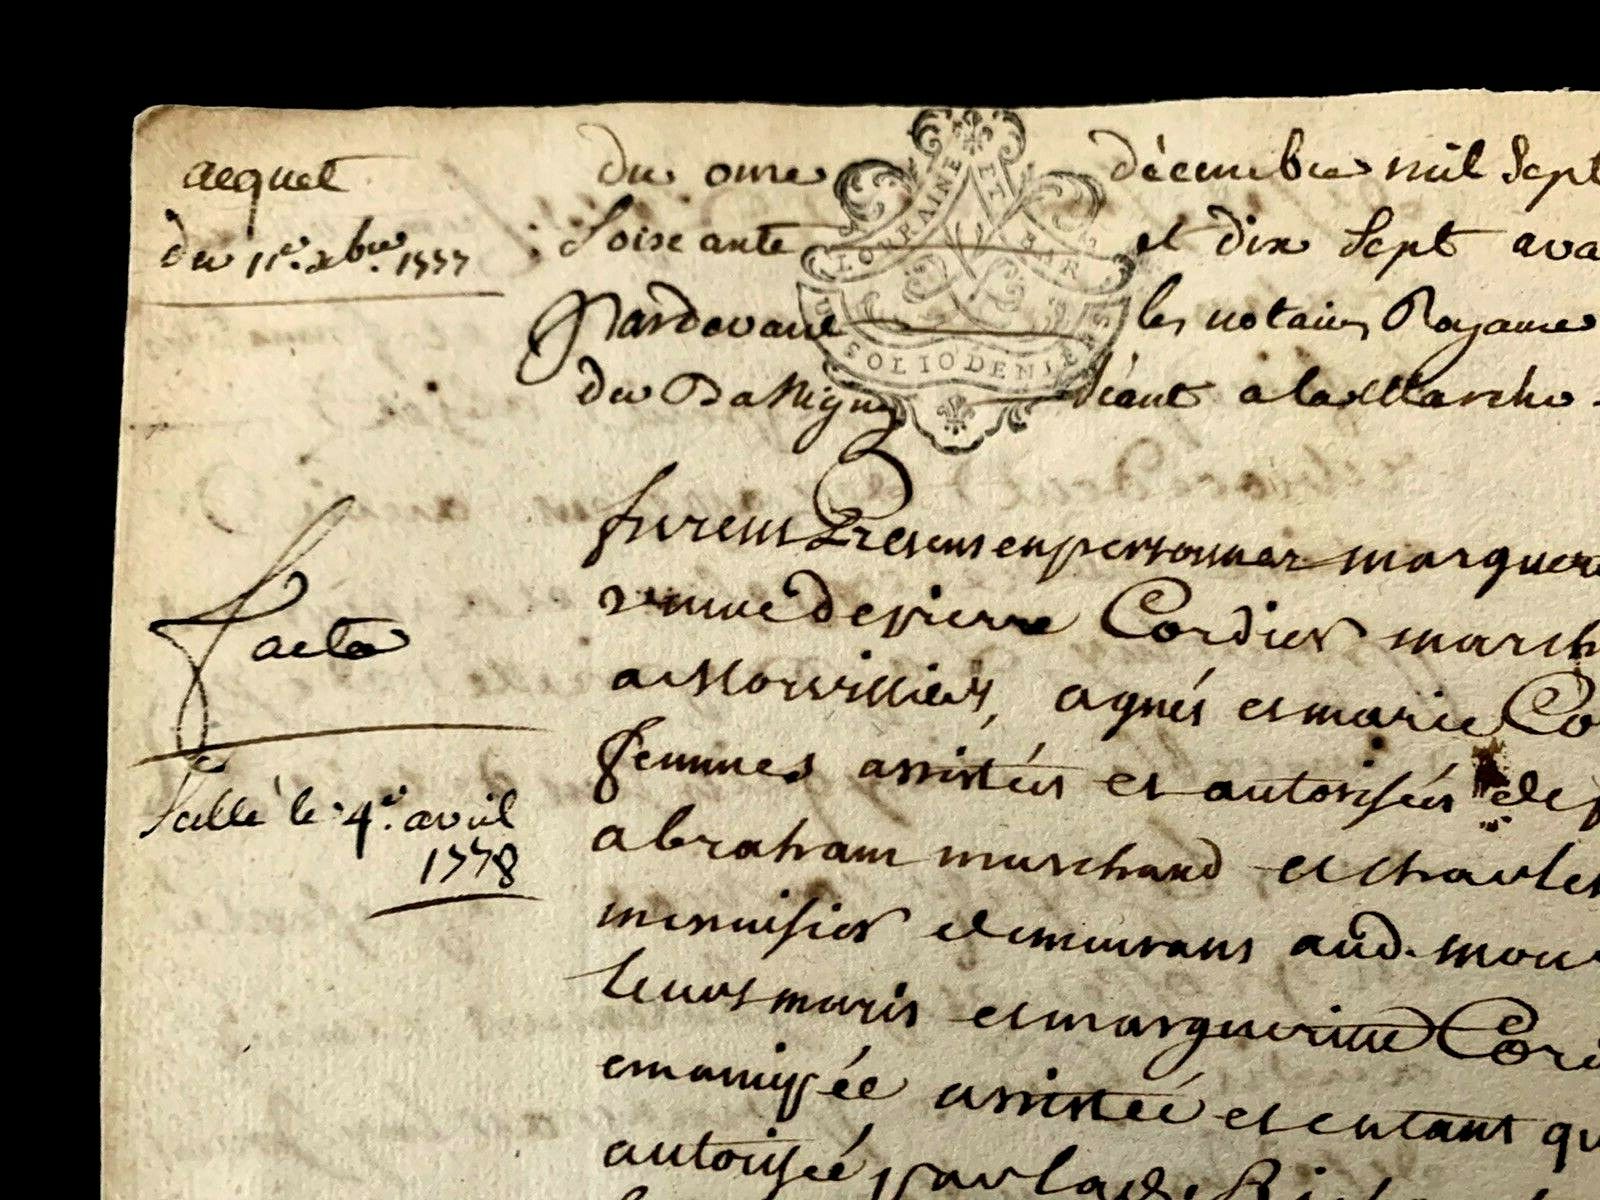 acquet
du 11e. xbre. 1777
du onze décembre mil Sept
Soixante et dix Sept ava
Pardevant les notaires Royaux
du Bassigny séant a la Marche
LORRAINE ET BAR
SOLIO DENIENS
facta
Scellé le 4e. avril
1778
furent Presens en personnes marguer
veuve de pierre Cordier march
a Morvilliers, agnés et marie Co
femmes assistées et autorisées de
abraham marchand et charles
menuisier demeurans aud. mor
leurs maris et margueritte Cord
emancipée assistée et entant qu
autorisée par